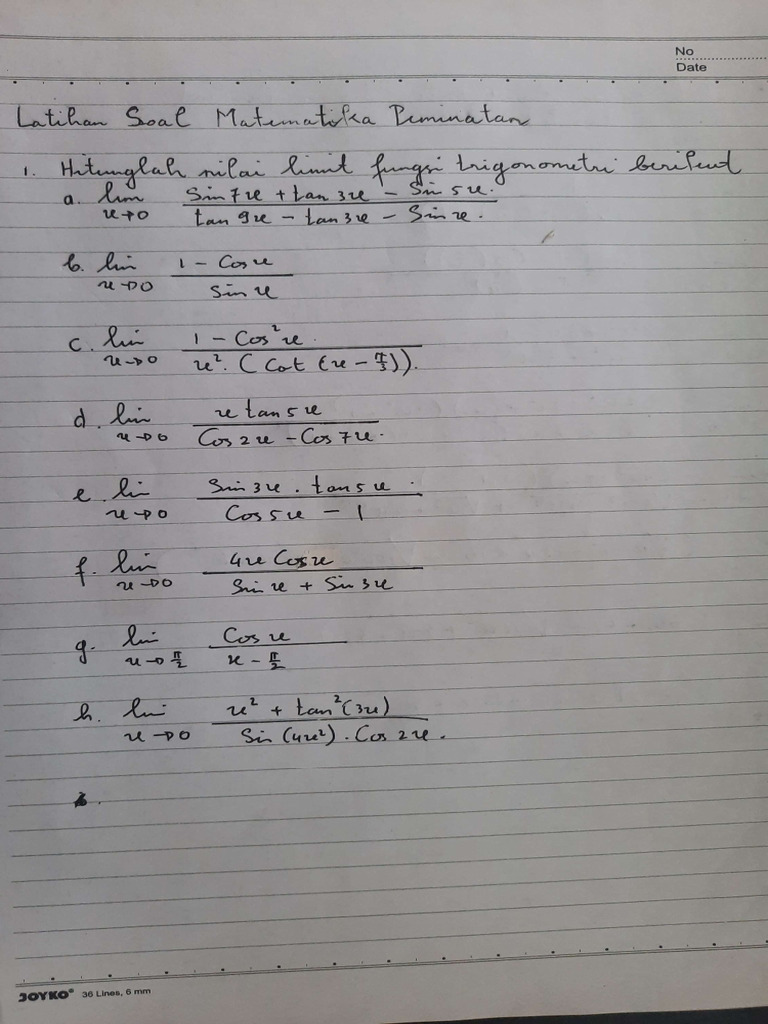 No
Date
Latihan Soal Matematika Peminatan
1. Hitunglah nilai limit fungsi trigonometri berikut
a. lim x→0 (Sin 7x + tan 3x - Sin 5x.) / (tan 9x - tan 3x - Sin x.)
b. lim x→0 (1 - Cos x) / (Sin x)
c. lim x→0 (1 - Cos² x.) / (x². (Cot (x - π/3)).)
d. lim x→0 (x tan 5x) / (Cos 2x - Cos 7x.)
e. lim x→0 (Sin 3x . tan 5x.) / (Cos 5x - 1)
f. lim x→0 (4x Cos x) / (Sin x + Sin 3x)
g. lim x→π/2 (Cos x) / (x - π/2)
h. lim x→0 (x² + tan² (3x)) / (Sin (4x²) . Cos 2x.)
JOYKO® 36 Lines, 6 mm